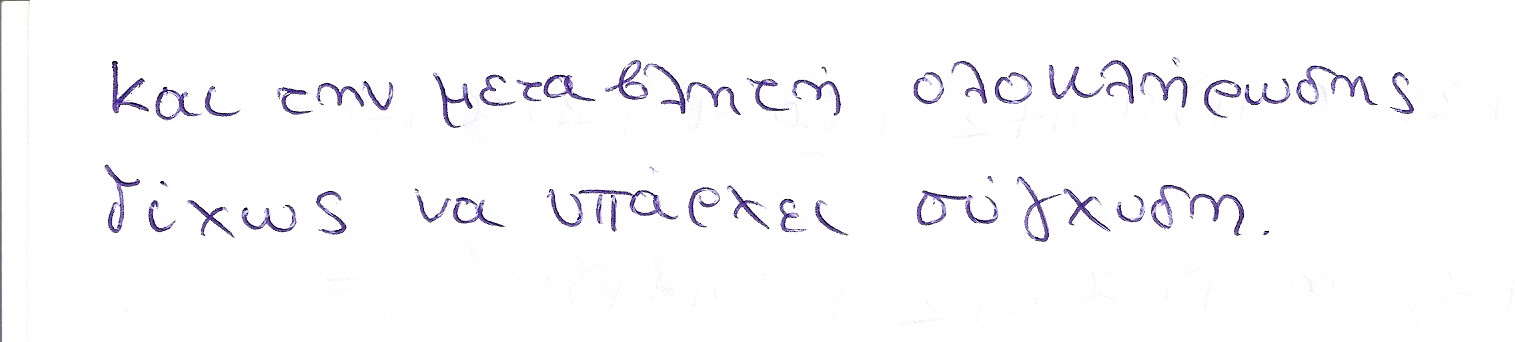 και την μεταβλητή ολοκλήρωσης
δίχως να υπάρχει σύγχυση.